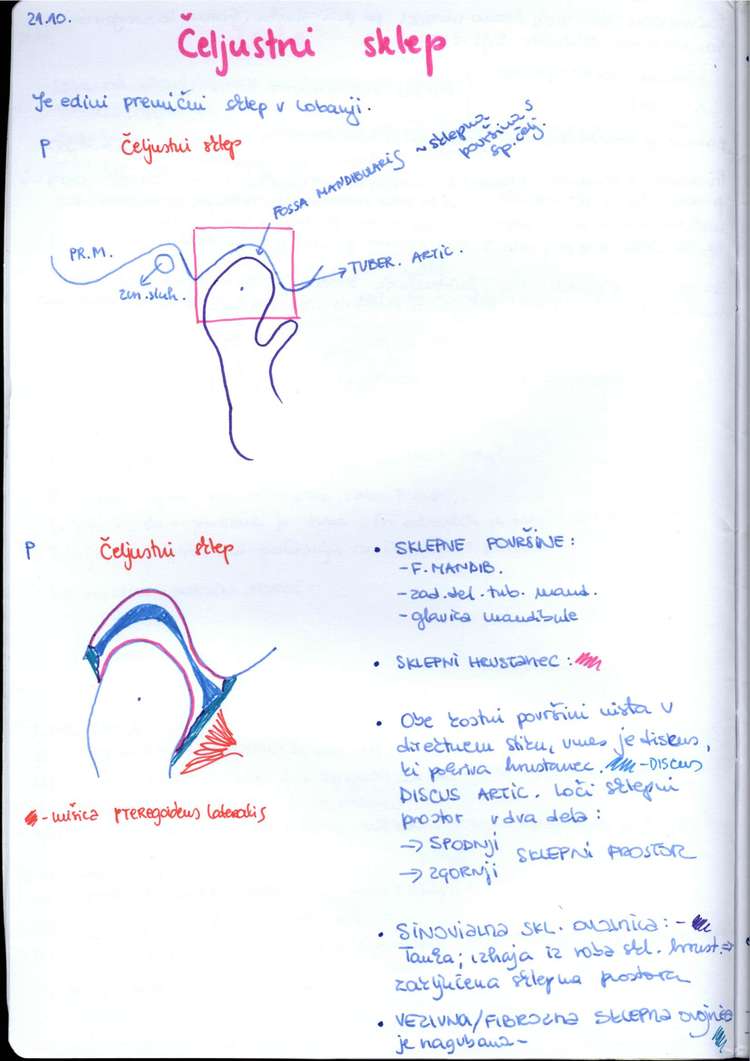 21.10.
Čeljustni sklep
Je edini premični sklep v lobanji.
P Čeljustni sklep
FOSSA MANDIBULARIS ~ sklepna
površina s
sp. čelj.
PR.M.
zun. sluh.
TUBER. ARTIC.
P Čeljustni sklep
- mišica PTEREGOIDEUS lateralis
• SKLEPNE POVRŠINE:
- F. MANDIB.
- zad. del. tub. mand.
- glavica mandibule
• SKLEPNI HRUSTANEC:
• Obe kostni površini nista v
direktnem stiku, vmes je diskus,
ki pokriva hrustanec. - DISCUS
DISCUS ARTIC. loči sklepni
prostor v dva dela:
→ SPODNJI
SKLEPNI PROSTOR
→ ZGORNJI
• SINOVIALNA SKL. OVOJNICA: -
Tanka; izhaja iz roba skl. hrust. ⇒
zaključena sklepna prostora
• VEZIVNA/FIBROZNA SKLEPNA ovojnica
je nagubana -